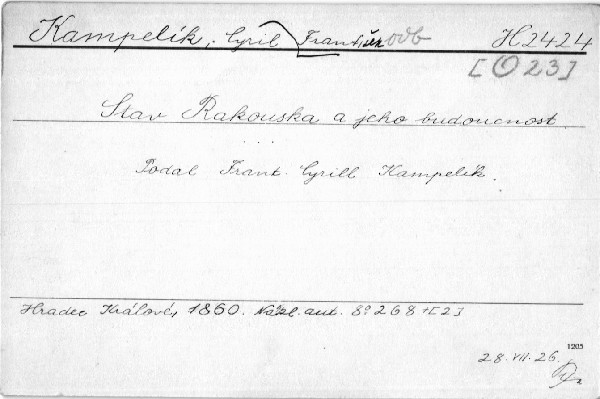 Kampelík, Cyril František odb H2424
[O 23]
Stav Rakouska a jeho budoucnost.
. . .
Podal Frant. Cyrill Kampelík.
Hradec Králové, 1860. Nákl. aut. 8° 268 + [2]
1205
28. VII. 26.